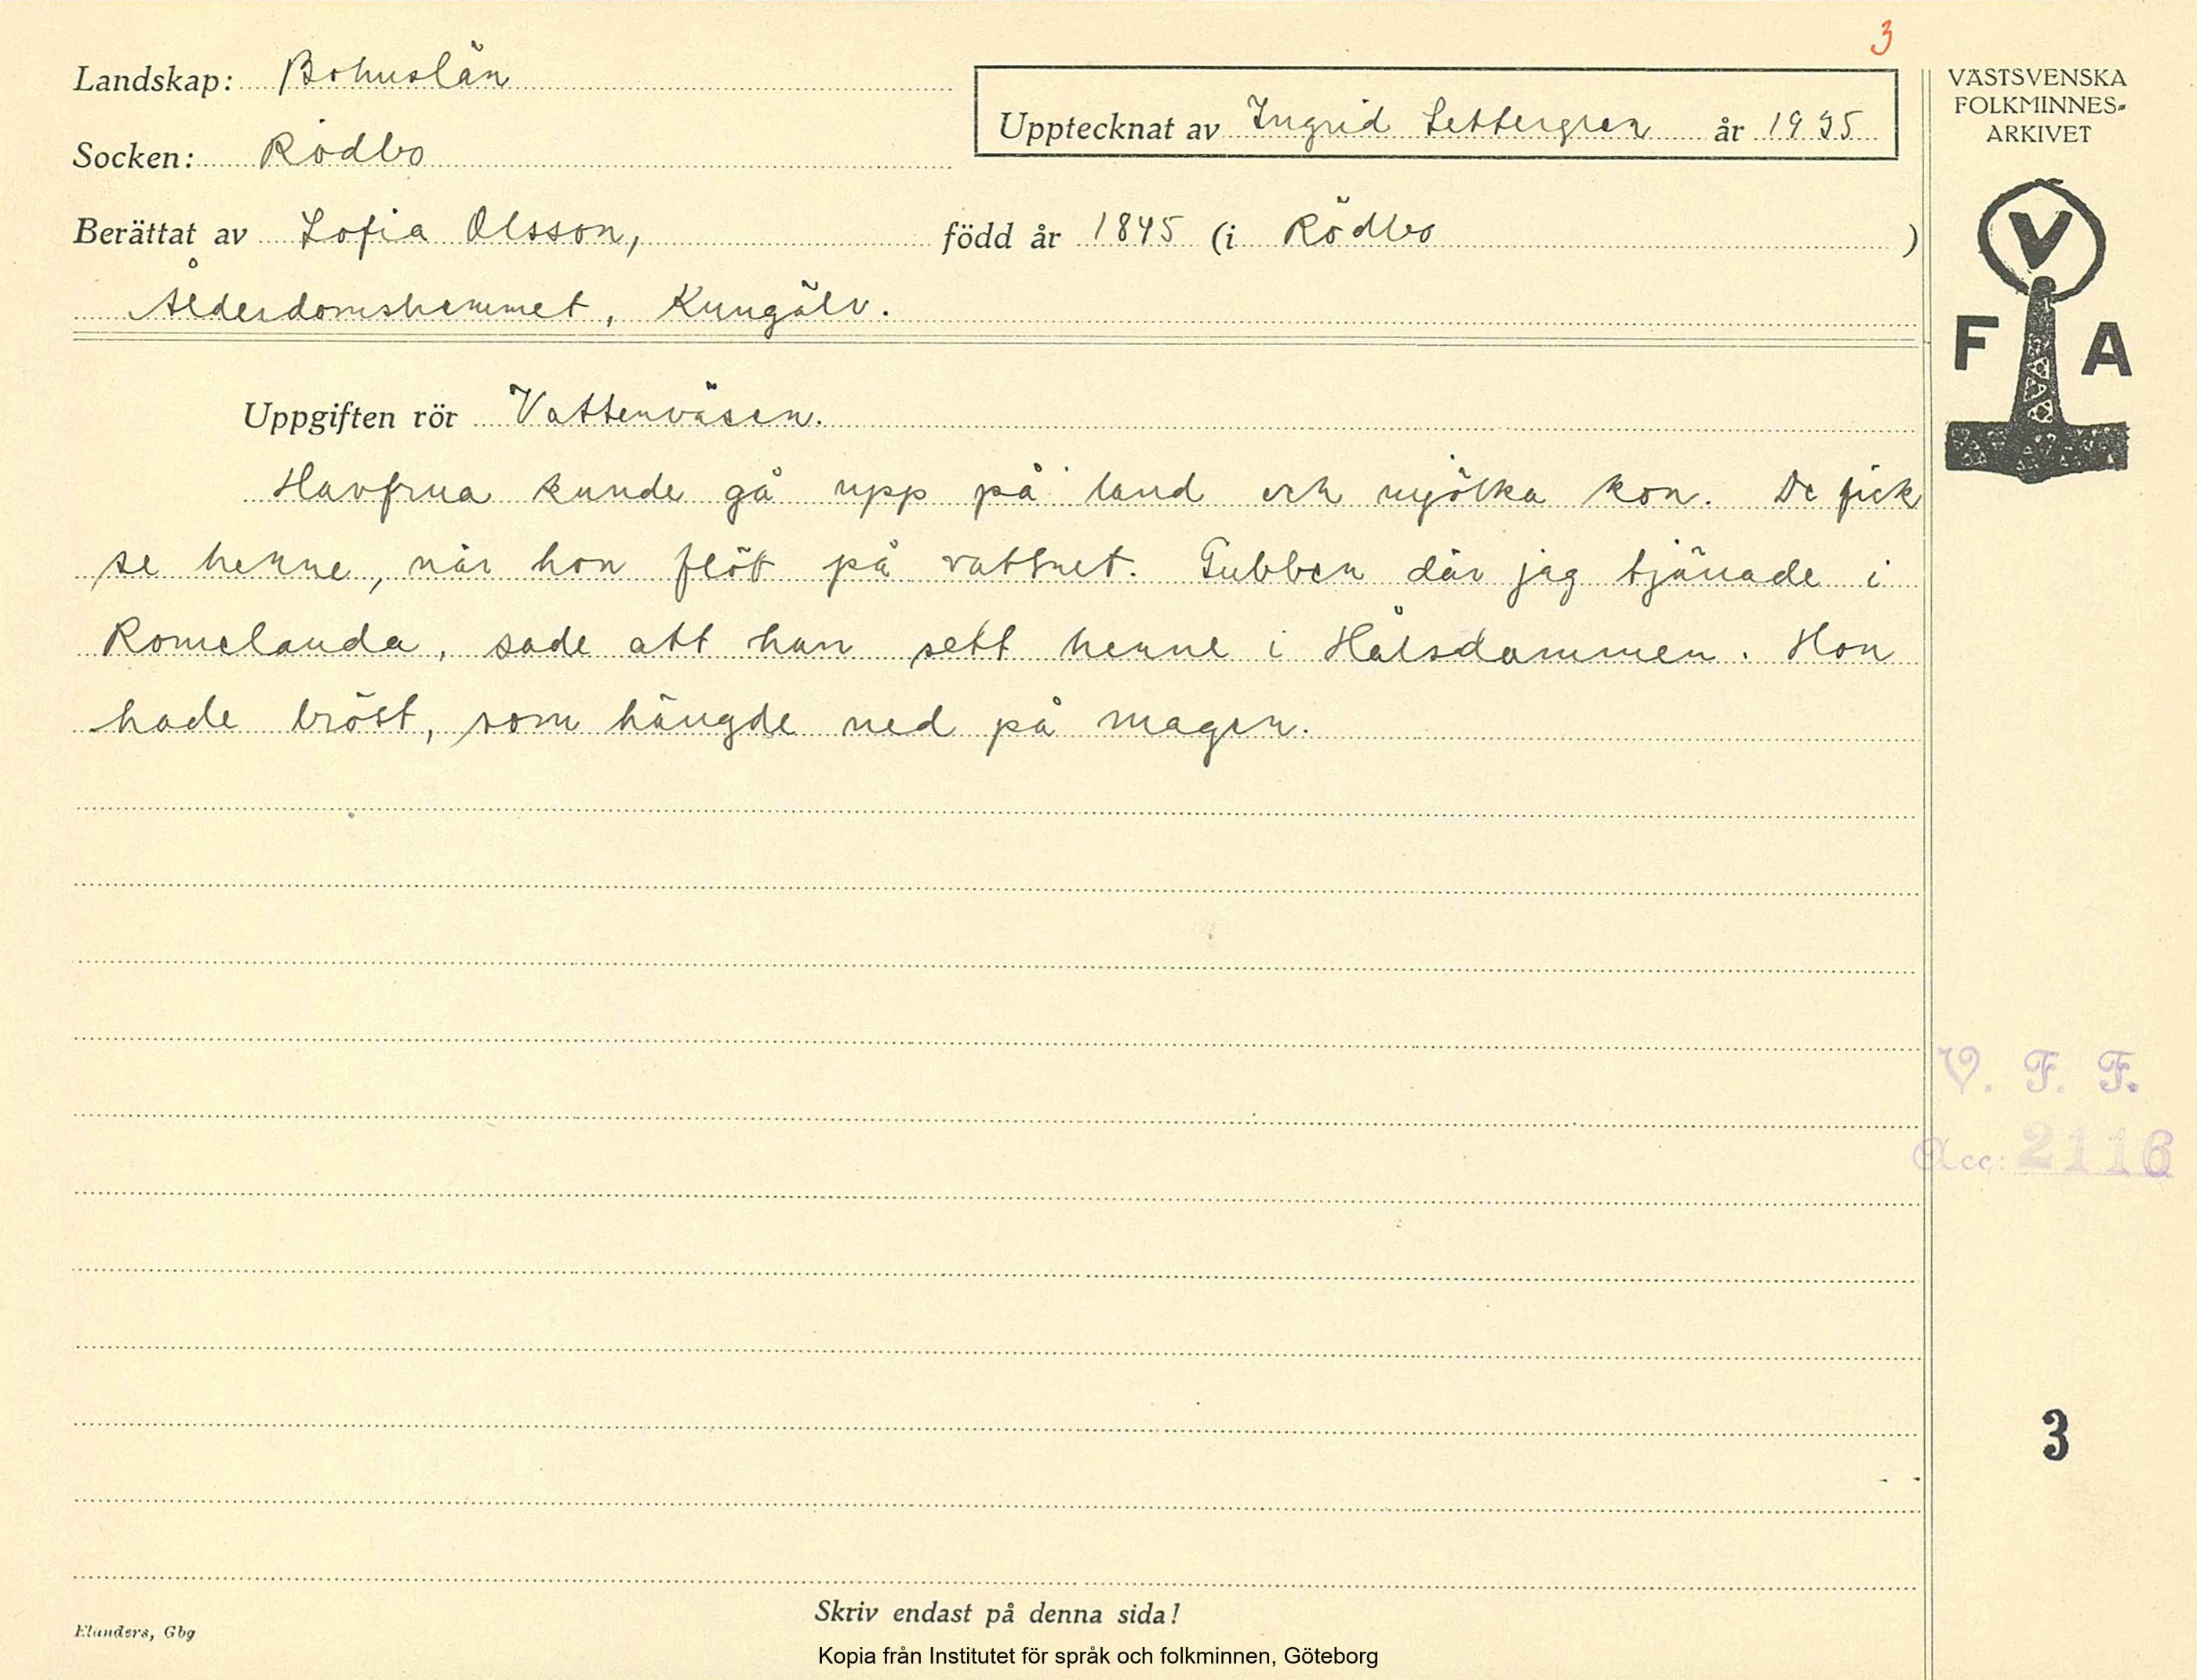 3
Landskap: Bohuslän
Upptecknat av Ingrid Settergren år 1935
Socken: Rödbo
Berättat av Sofia Olsson, född år 1845 (i Rödbo )
Ålderdomshemmet, Kungälv.
VÄSTSVENSKA
FOLKMINNES-
ARKIVET
V
F A
Uppgiften rör Vattenväsen.
Havfrua kunde gå upp på land och mjölka kon. De fick
se henne, när hon flöt på vattnet. Gubben där jag tjänade i
Romelanda, sade att han sett henne i Hålsdammen. Hon
hade bröst, som hängde ned på magen.
V. F. F.
Acc: 2116
3
Skriv endast på denna sida!
Elanders, Gbg
Kopia från Institutet för språk och folkminnen, Göteborg